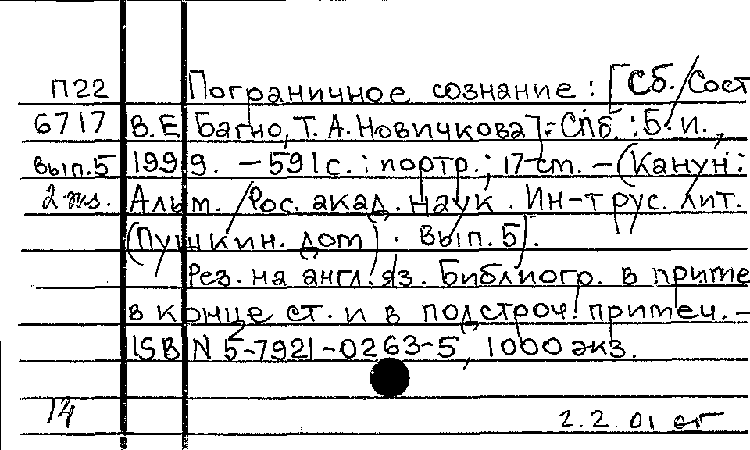 П22 Пограничное сознание : [Сб. / Сост
6717 В.Е. Багно, Т. А. Новичкова]. - СПб. : Б. и.,
вып.5 1999. - 591 с. : портр. ; 17 cm. - (Канун :
2 экз. Альм. / Рос. акад. наук. Ин-т рус. лит.
(Пушкин. дом) . Вып. 5).
Рез. на англ. яз. Библиогр. в приме
в конце ст. и в подстроч. примеч. -
ISBN 5-7921-0263-5, 1000 экз.
14 2.2.01